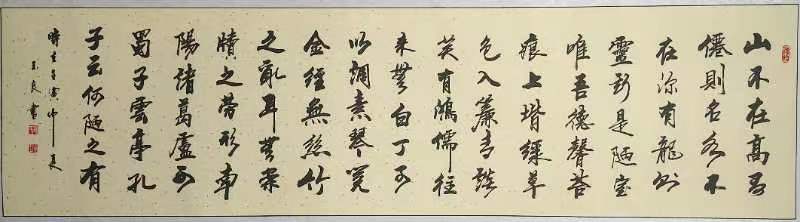 山不在高有
僊則名水不
在深有龍則
靈斯是陋室
唯吾德馨苔
痕上堦綠草
色入簾青談
笑有鴻儒往
来無白丁可
以調素琴閱
金經無絲竹
之亂耳無案
牘之勞形南
陽諸葛廬西
蜀子雲亭孔
子云何陋之有
時在壬寅仲夏
良書